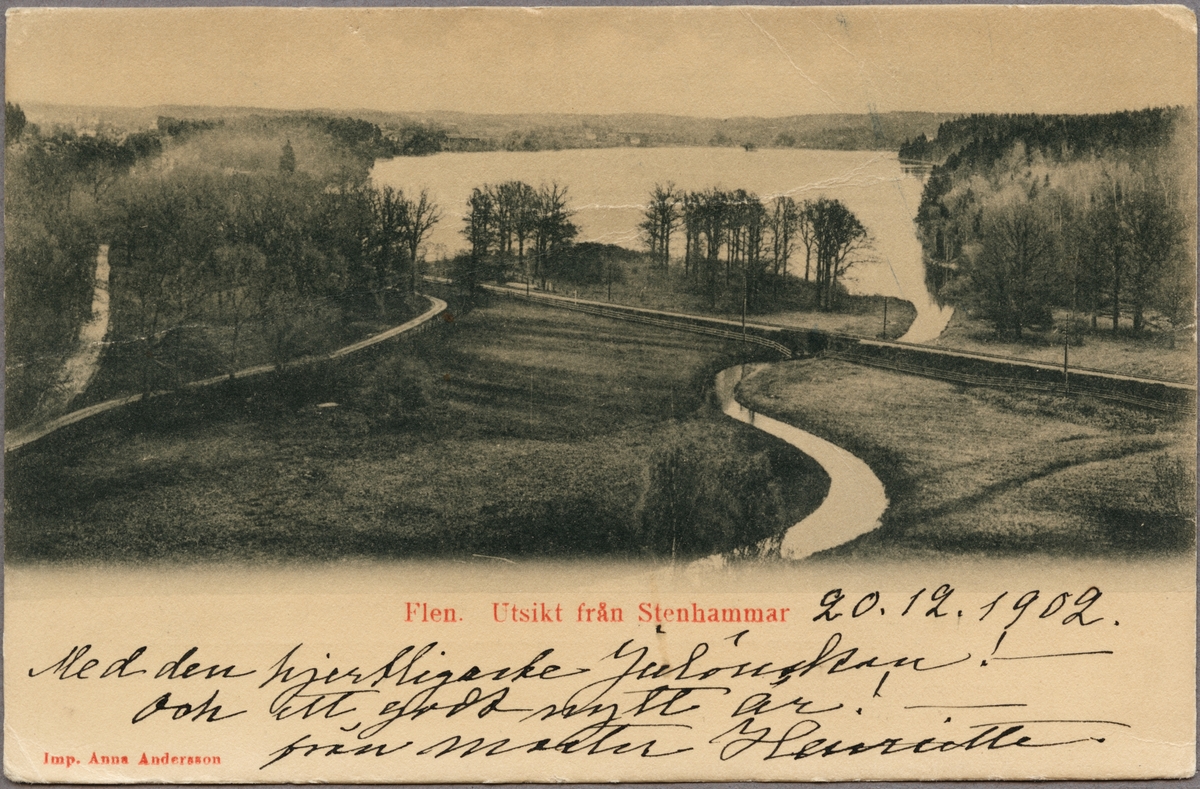 Flen. Utsikt från Stenhammar 20.12.1902.
Med den hjertligaste Julönskan!
och ett godt nytt år!
från moster Henriette.
Imp. Anna Andersson